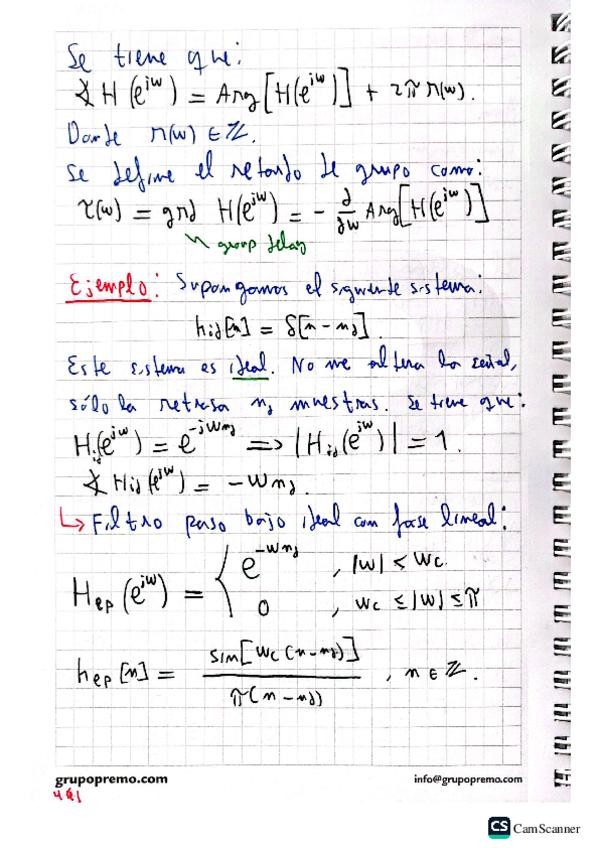 Se tiene que:
∡ H(e^{jw}) = Arg[H(e^{jw})] + 2π r(w).
Donde r(w) ∈ ℤ.
Se define el retardo de grupo como:
τ(w) = grd H(e^{jw}) = - ∂/∂w Arg[H(e^{jw})]
↳ group delay
Ejemplo: Supongamos el siguiente sistema:
h_{id}[n] = δ[n - n_d].
Este sistema es ideal. No me altera la señal,
sólo la retrasa n_d muestras. Se tiene que:
H_{id}(e^{jw}) = e^{-jwn_d} => |H_{id}(e^{jw})| = 1.
∡ H_{id}(e^{jw}) = -wn_d.
↳ Filtro paso bajo ideal con fase lineal:
H_{ep}(e^{jw}) = { e^{-wn_d} , |w| < w_c
0 , w_c ≤ |w| ≤ π
h_{ep}[n] = sin[w_c(n-n_d)] / π(n-n_d) , n ∈ ℤ.
grupopremo.com info@grupopremo.com
CS CamScanner